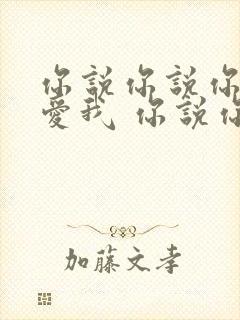 你說你說你
愛我 你說你
加藤文孝